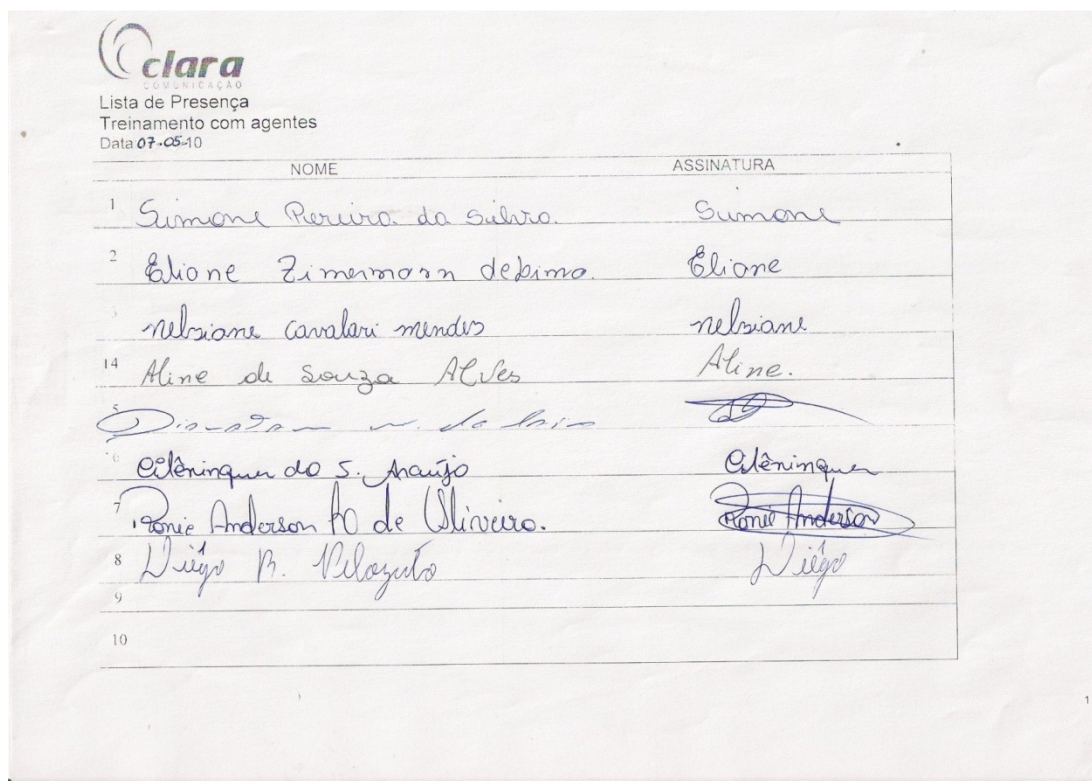 clara
COMUNICAÇÃO
Lista de Presença
Treinamento com agentes
Data 07-05-10
NOME ASSINATURA
1 Simone Pereira da Silva. Simone
2 Eliane Zimermann debima. Eliane
nelsiane cavalari mendes nelsiane
14 Aline de Souza Alves Aline.
5
6 do S. Araújo
7 Ronie Anderson de Oliveira. Ronie Anderson
8 Diêgo R. Diêgo
9
10
1